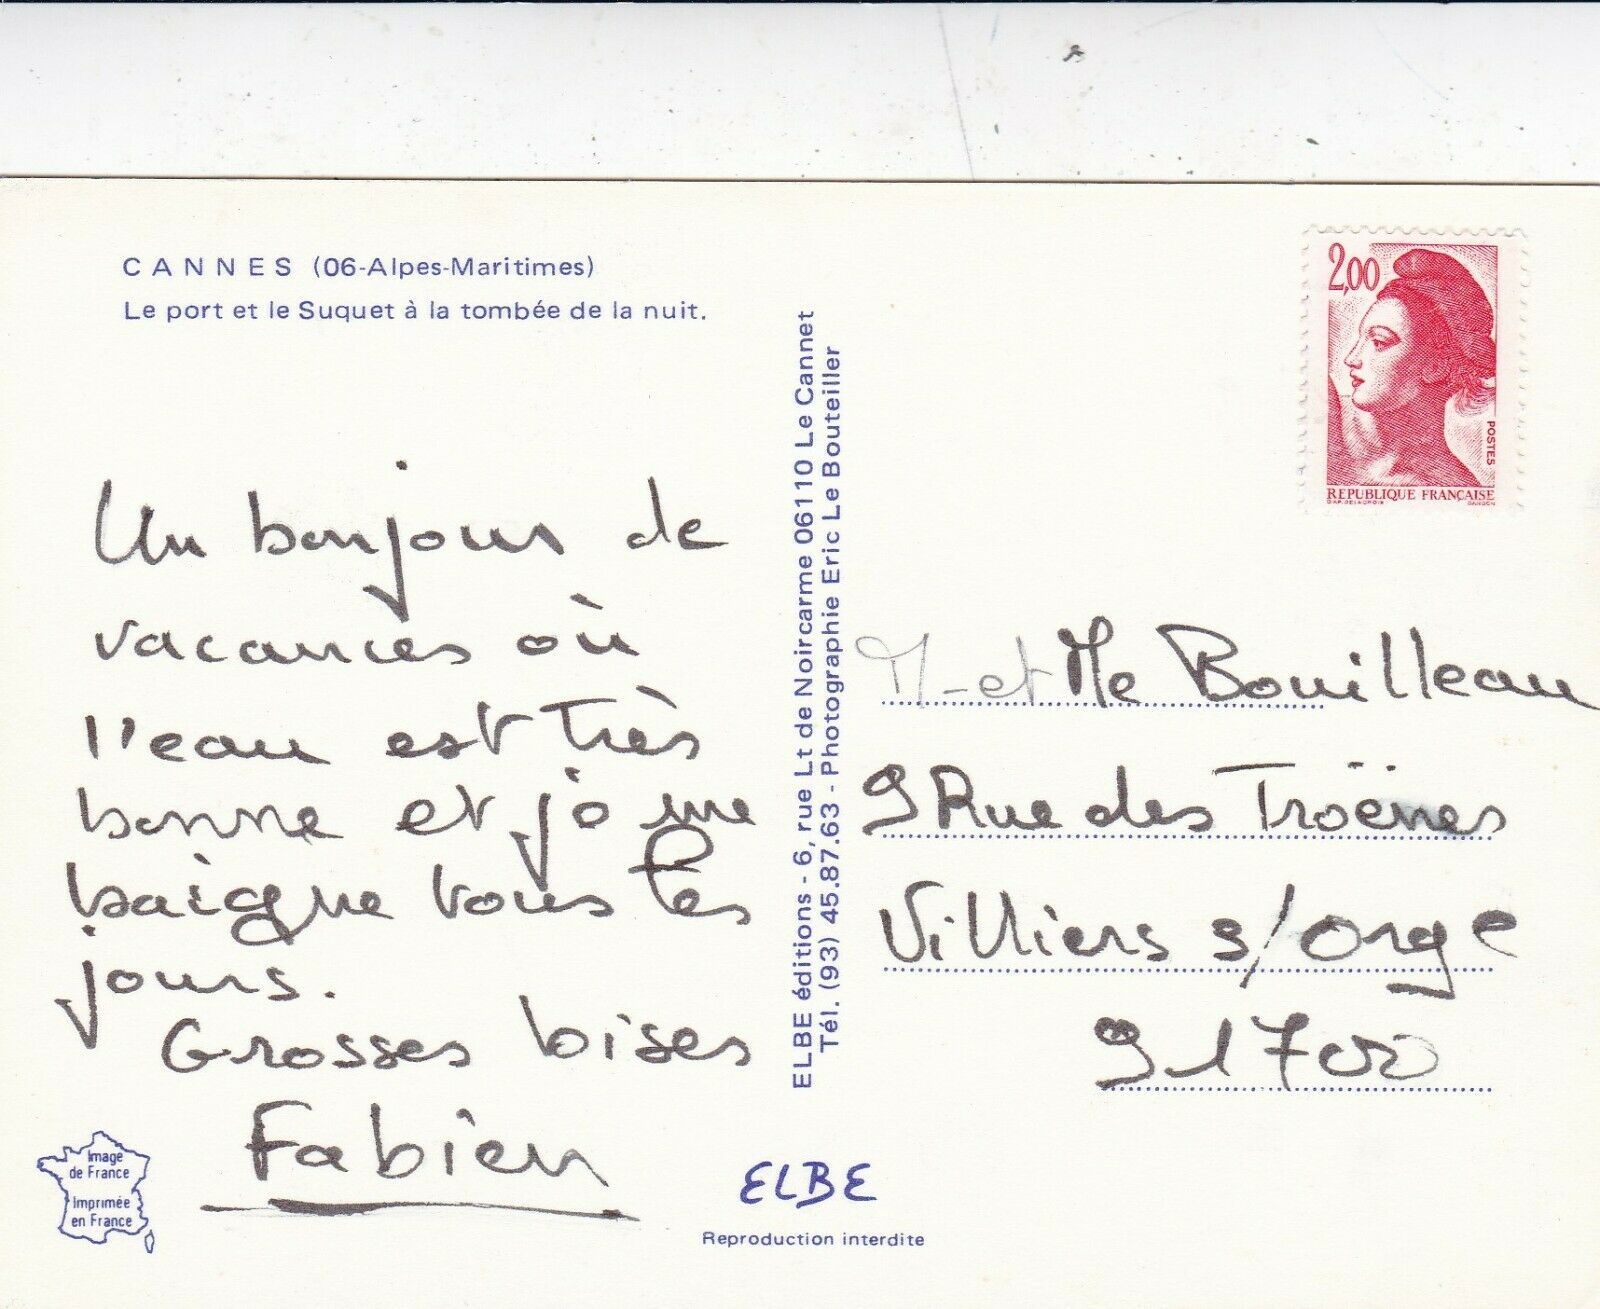 CANNES (06-Alpes-Maritimes)
Le port et le Suquet à la tombée de la nuit.
Un bonjour de
vacances où
l'eau est très
bonne et je me
baigne tous les
jours.
Grosses bises
Fabien
Image
de France
Imprimée
en France
ELBE éditions - 6, rue Lt de Noircarme 06110 Le Cannet
Tél. (93) 45.87.63 - Photographie Eric Le Bouteiller
ELBE
Reproduction interdite
2,00
POSTES
REPUBLIQUE FRANÇAISE
D'AP. DELACROIX GANDON
M- et Me Bouilleau
9 Rue des Troënes
Villiers s/Orge
91700